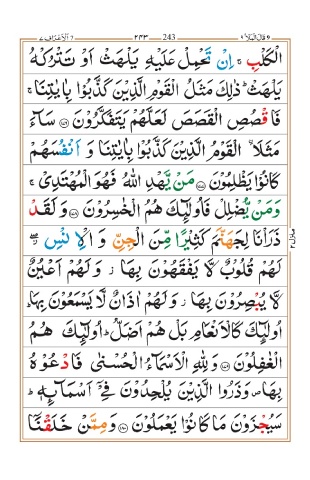 قال الملا ۹ ۲۴۳ 243 الاعراف ۷
الْكَلْبِ ۚ اِنْ تَحْمِلْ عَلَيْهِ يَلْهَثْ اَوْ تَتْرُكْهُ
يَلْهَثْ ؕ ذٰلِكَ مَثَلُ الْقَوْمِ الَّذِيْنَ كَذَّبُوْا بِاٰيٰتِنَا ۚ
فَاقْصُصِ الْقَصَصَ لَعَلَّهُمْ يَتَفَكَّرُوْنَ ﴿۱۷۶﴾ سَآءَ
مَثَلَاۨ الْقَوْمُ الَّذِيْنَ كَذَّبُوْا بِاٰيٰتِنَا وَ اَنْفُسَهُمْ
كَانُوْا يَظْلِمُوْنَ ﴿۱۷۷﴾ مَنْ يَّهْدِ اللّٰهُ فَهُوَ الْمُهْتَدِيْ ۚ
وَمَنْ يُّضْلِلْ فَاُولٰٓئِكَ هُمُ الْخٰسِرُوْنَ ﴿۱۷۸﴾ وَلَقَدْ
ذَرَاْنَا لِجَهَنَّمَ كَثِيْرًا مِّنَ الْجِنِّ وَ الْاِنْسِ ۖ
لَهُمْ قُلُوْبٌ لَّا يَفْقَهُوْنَ بِهَا ؗ وَلَهُمْ اَعْيُنٌ
لَّا يُبْصِرُوْنَ بِهَا ؗ وَلَهُمْ اٰذَانٌ لَّا يَسْمَعُوْنَ بِهَا ؕ
اُولٰٓئِكَ كَالْاَنْعَامِ بَلْ هُمْ اَضَلُّ ؕ اُولٰٓئِكَ هُمُ
الْغٰفِلُوْنَ ﴿۱۷۹﴾ وَلِلّٰهِ الْاَسْمَآءُ الْحُسْنٰى فَادْعُوْهُ
بِهَا ۪ وَذَرُوا الَّذِيْنَ يُلْحِدُوْنَ فِيْۤ اَسْمَآئِهٖ ؕ
سَيُجْزَوْنَ مَا كَانُوْا يَعْمَلُوْنَ ﴿۱۸۰﴾ وَمِمَّنْ خَلَقْنَاۤ
منزل ۲